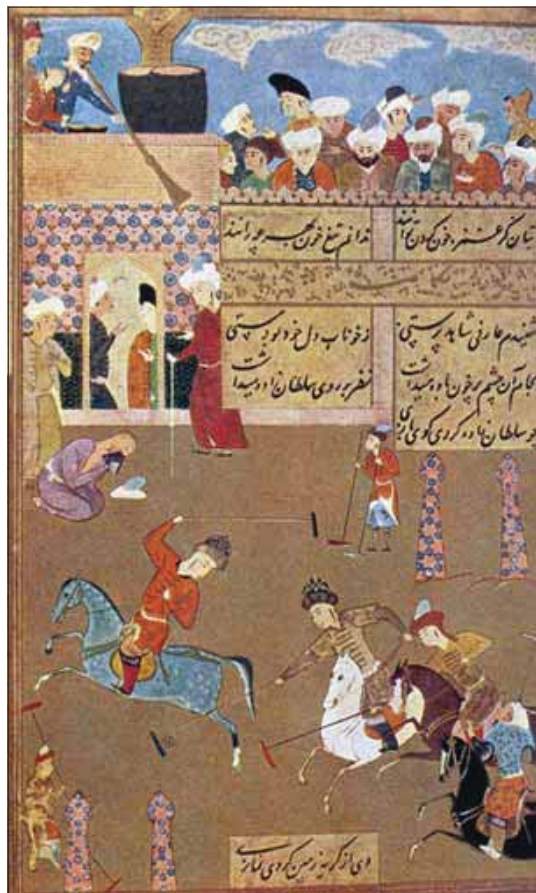 بتان کز غمزه خون کردن توانند ندانم تیغ خون بهر چه رانند
شنیدم عارفی شاهد پرستی ز خوناب دل خود بود مستی
بجام آن چشم پر خون باده میداشت نظر بر روی سلطان زاده میداشت
چو سلطان زاده کردی گوی بازی
وی از گریه زمین کردی نمازی